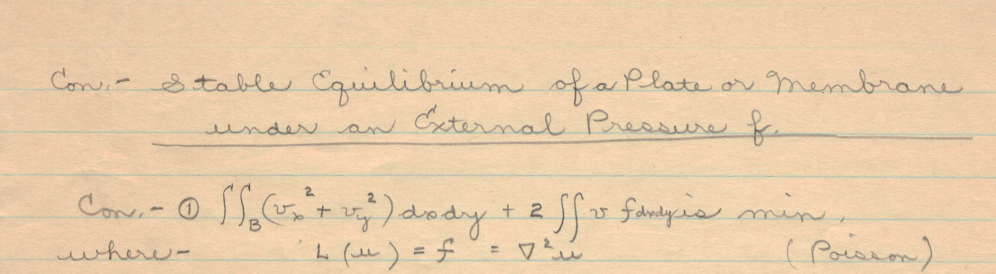 Con.- Stable Equilibrium of a Plate or Membrane
under an External Pressure f.
Con.- ① ∬_B (v_x² + v_y²) dxdy + 2 ∬ v f dxdy is min.
where- L(u) = f = ∇²u (Poisson)